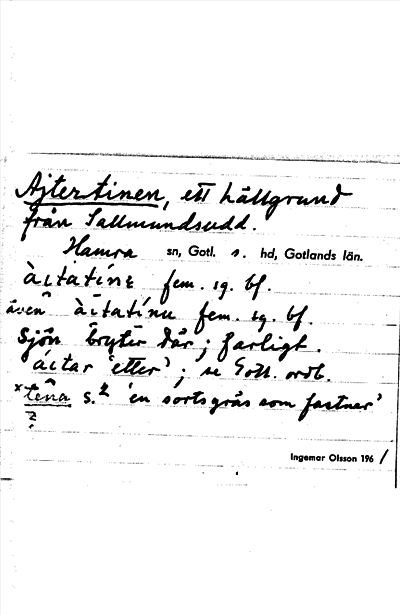 Ajtertinen, ett hällgrund
från Sallmundsudd.
Hamra sn, Gotl. s. hd, Gotlands län.
àitatínɛ fem. sg. bf.
även àitatínu fem. sg. bf.
Sjön bryter där; farligt.
áitar 'etter'; se Gotl. ordb.
*tena s.2 'en sorts gräs som fastnar'
?
Ingemar Olsson 196 1